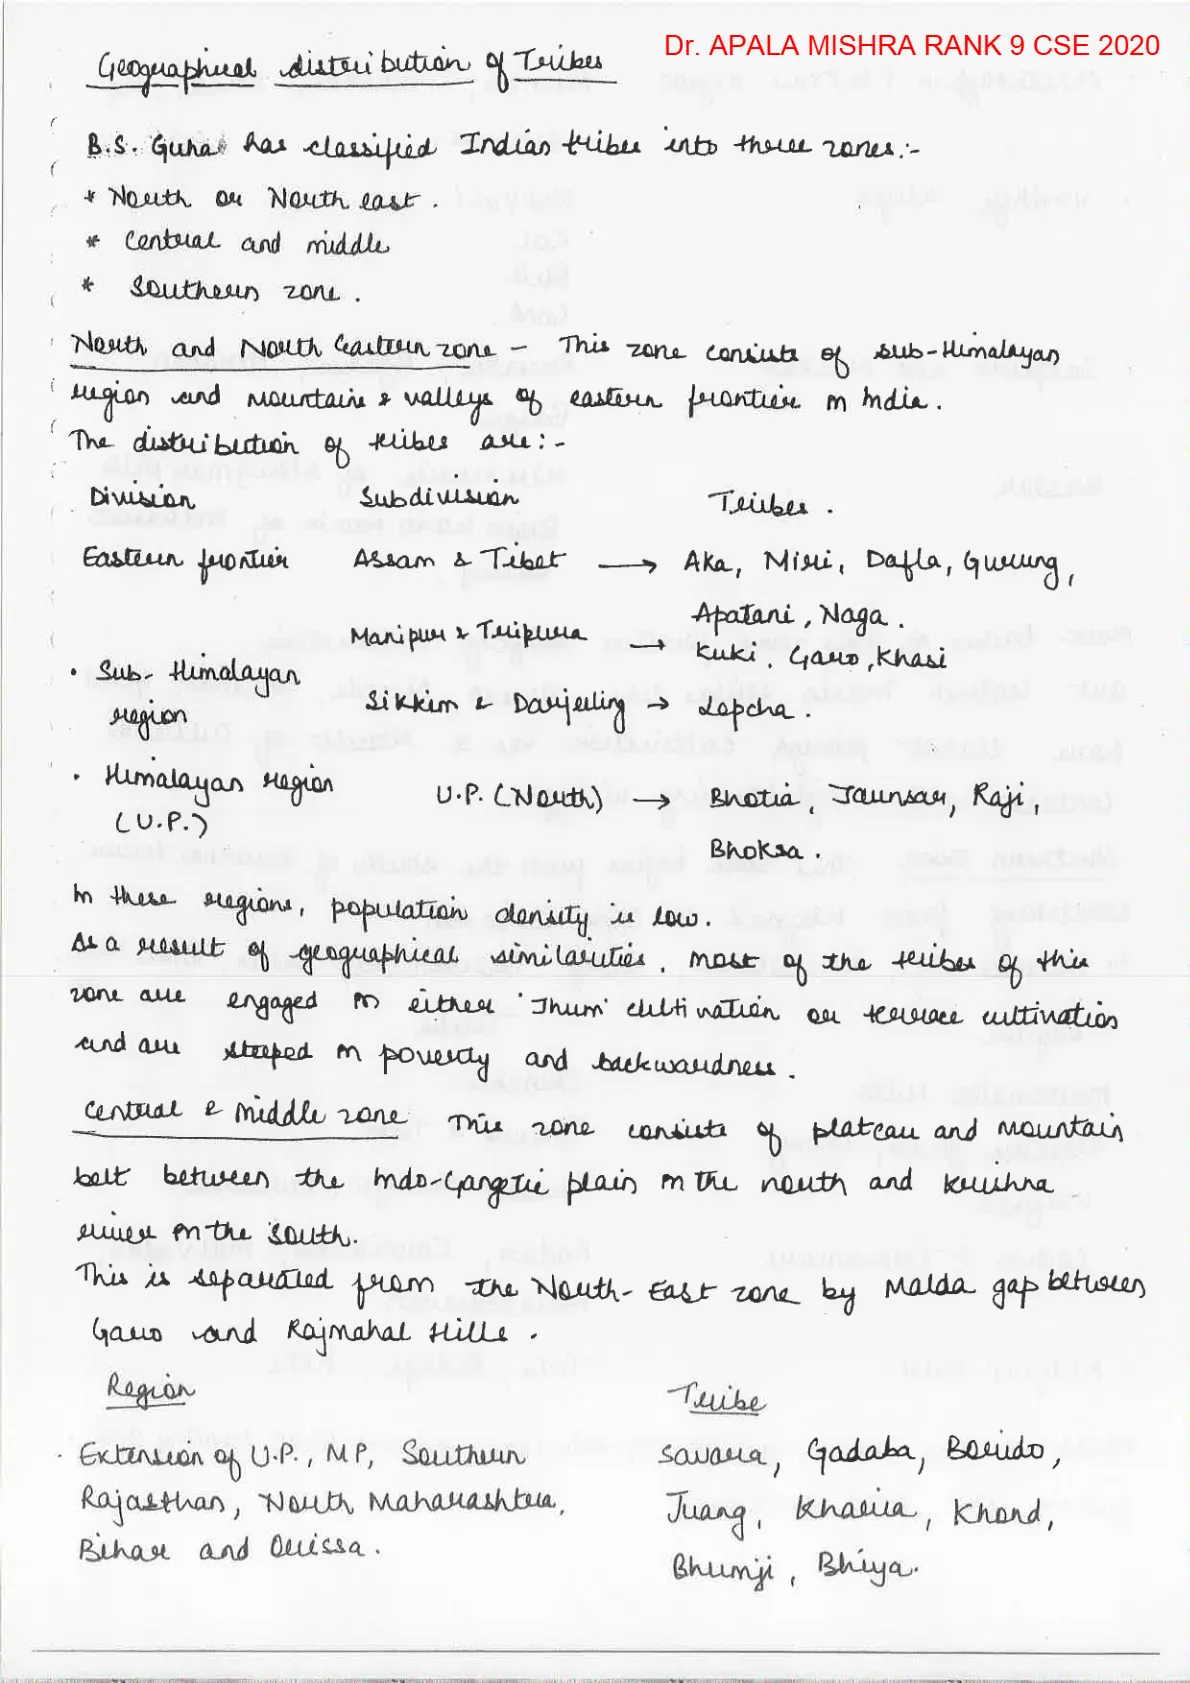 Dr. APALA MISHRA RANK 9 CSE 2020
Geographical distribution of Tribes
B.S. Guha has classified Indian tribes into three zones:-
* North or North east.
* Central and middle
* Southern zone.
North and North Eastern zone – This zone consists of sub-Himalayan
region and mountains & valleys of eastern frontier in India.
The distribution of tribes are:-
Division Subdivision Tribes.
Eastern frontier Assam & Tibet → Aka, Miri, Dafla, Gurung,
Apatani, Naga.
Manipur & Tripura → Kuki, Garo, Khasi
• Sub-Himalayan
region Sikkim & Darjeeling → Lepcha.
• Himalayan region
(U.P.) U.P. (North) → Bhotia, Jaunsar, Raji,
Bhoksa.
In these regions, population density is low.
As a result of geographical similarities, most of the tribes of this
zone are engaged in either 'Jhum' cultivation or terrace cultivation
and are steeped in poverty and backwardness.
Central & middle zone This zone consists of plateau and mountain
belt between the Indo-Gangetic plain in the north and Krishna
river in the south.
This is separated from the North-East zone by Malda gap between
Garo and Rajmahal Hills.
Region Tribe
• Extension of U.P., MP, Southern Savara, Gadaba, Borido,
Rajasthan, North Maharashtra, Juang, Kharia, Khond,
Bihar and Orissa. Bhumji, Bhiya.